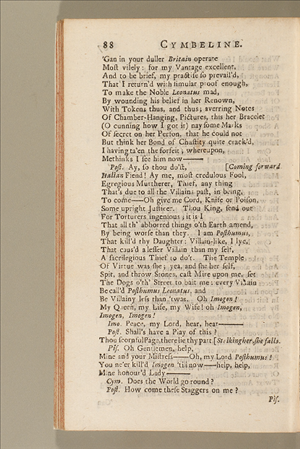 88 CYMBELINE.
'Gan in your duller Britain operate
Most vilely: for my Vantage excellent.
And to be brief, my practise so prevail'd,
That I return'd with simular proof enough,
To make the Noble Leonatus mad,
By wounding his belief in her Renown,
With Tokens thus, and thus; averring Notes
Of Chamber-Hanging, Pictures, this her Bracelet
(O cunning how I got it) nay some Marks
Of secret on her Person, that he could not
But think her Bond of Chastity quite crack'd,
I having ta'en the forfeit; whereupon,
Methinks I see him now——
Post. Ay, so thou do'st, [Coming forward
Italian Fiend! Ay me, most credulous Fool,
Egregious Murtherer, Thief, any thing
That's due to all the Villains past, in being,
To come—Oh give me Cord, Knife or Poison,
Some upright Justicer. Thou King, send out
For Torturers ingenious; it is I
That all th' abhorred things o'th' Earth amend,
By being worse than they. I am Posthumus,
That kill'd thy Daughter: Villain-like, I lye,
That caus'd a lesser Villain than my self,
A sacrilegious Thief to do't. The Temple
Of Virtue was she; yea, and she her self,
Spit, and throw Stones, cast Mire upon me, set
The Dogs o'th' Street to bait me: every Villain
Be call'd Posthumus Leonatus, and
Be Villainy less than 'twas. Oh Imogen!
My Queen, my Life, my Wife! oh Imogen,
Imogen, Imogen!
Imo. Peace, my Lord, hear, hear——
Post. Shall's have a Play of this?
Thou scornful Page, there lie thy part. [Striking her, she falls.
Pis. Oh Gentlemen, help,
Mine and your Mistress——Oh, my Lord Posthumus!
You ne'er kill'd Imogen 'til now——help, help,
Mine honour'd Lady——
Cym. Does the World go round?
Post. How come these Staggers on me?
Pis.